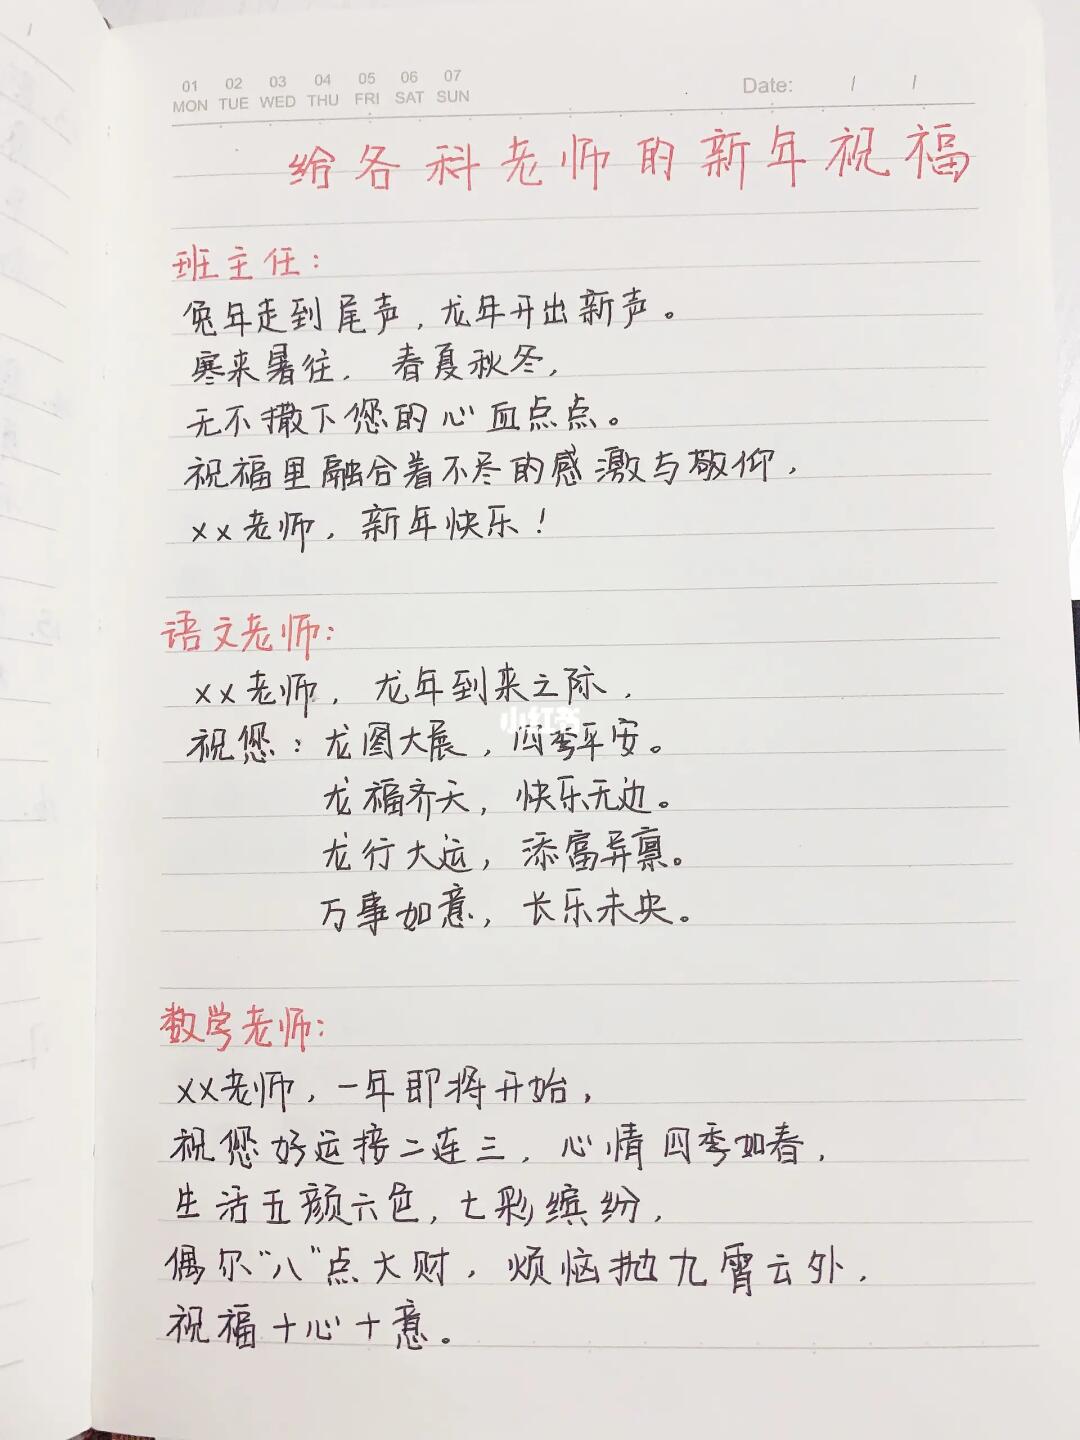 01 02 03 04 05 06 07
MON TUE WED THU FRI SAT SUN
Date: / /
给各科老师的新年祝福
班主任：
兔年走到尾声，龙年开出新声。
寒来暑往，春夏秋冬，
无不撒下您的心血点点。
祝福里融合着不尽的感激与敬仰，
xx老师，新年快乐！
语文老师：
xx老师，龙年到来之际，
小红书
祝您：龙图大展，四季平安。
龙福齐天，快乐无边。
龙行大运，添富异禀。
万事如意，长乐未央。
数学老师：
xx老师，一年即将开始，
祝您好运接二连三，心情四季如春，
生活五颜六色，七彩缤纷，
偶尔“八”点大财，烦恼抛九霄云外，
祝福十心十意。